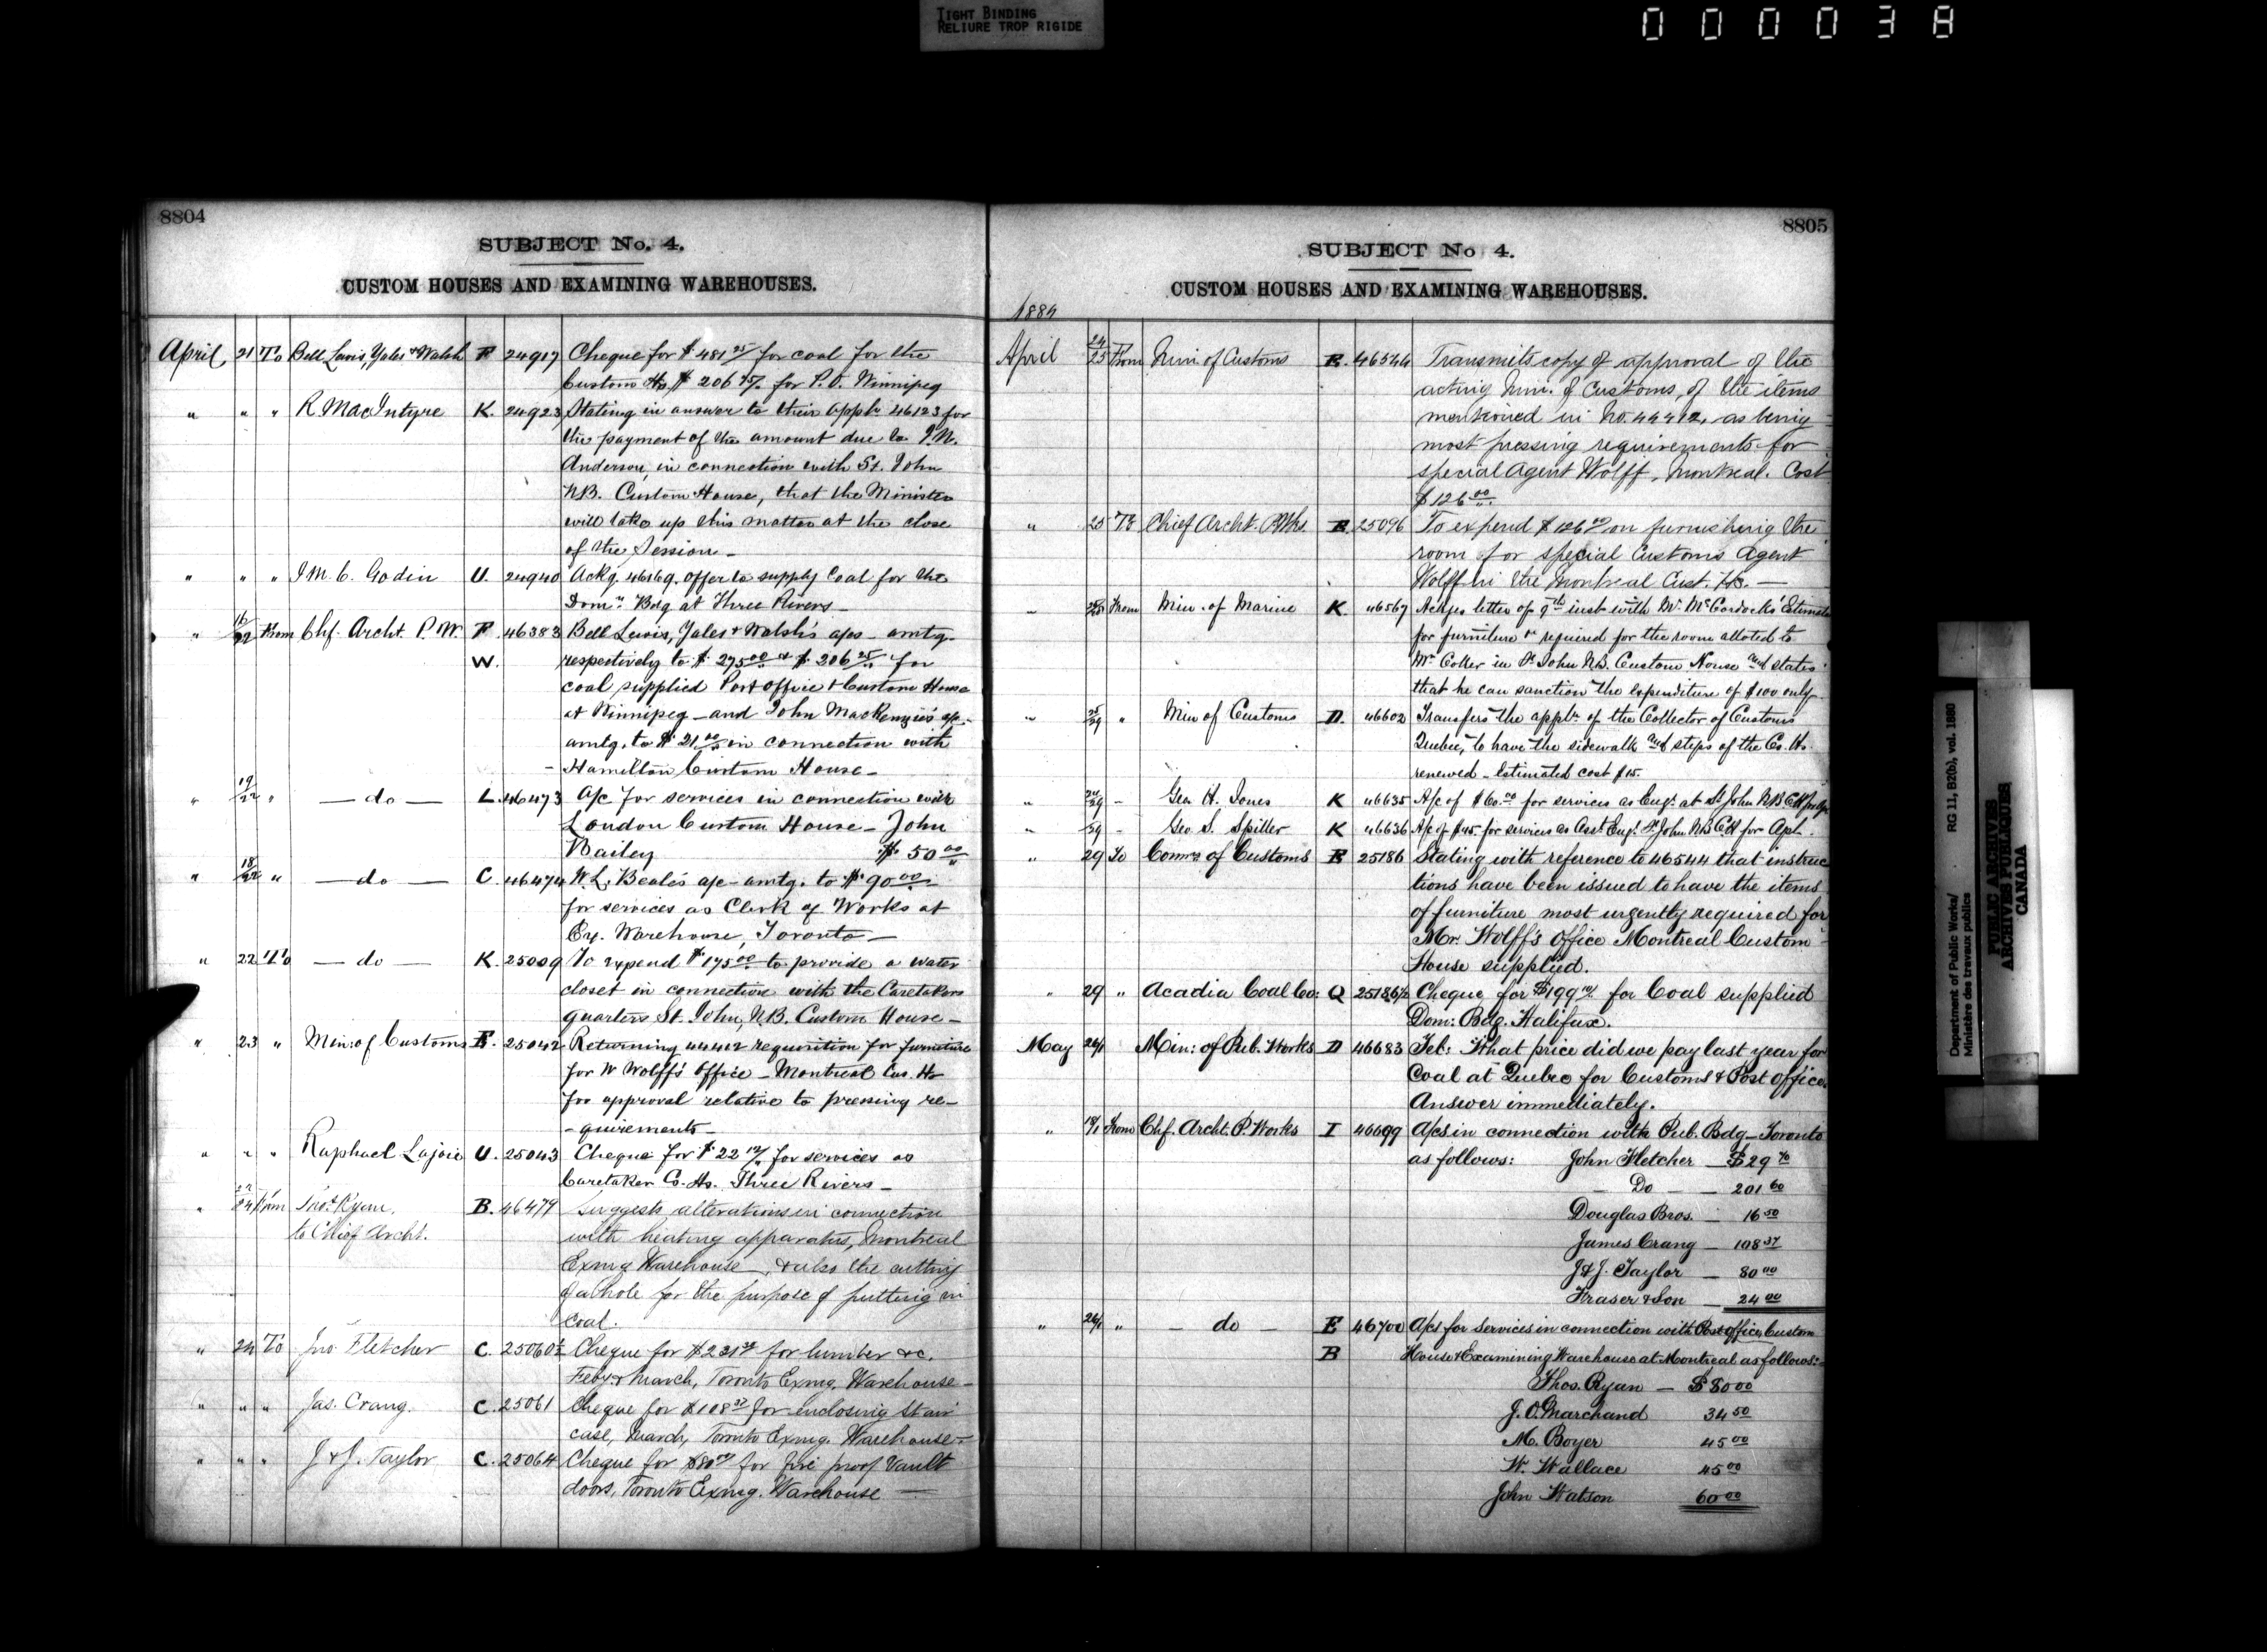 TIGHT BINDING
RELIURE TROP RIGIDE
000038
8804
SUBJECT No. 4.
CUSTOM HOUSES AND EXAMINING WAREHOUSES.
April 21 To Bell Lewis, Yates & Walsh F 24917 Cheque for $481 25/ for coal for the
Custom Ho. $206 25/ for P.O. Winnipeg
" " " R. MacIntyre K. 24923 Stating in answer to their appln 46123 for
the payment of the amount due to
Anderson, in connection with St. John
N.B. Custom House, that the Minister
will take up this matter at the close
of the Session –
" " " J.M.C. Godin U. 24940 Ackg. 46169. offer to supply Coal for the
Domn. Bdg at Three Rivers –
" 16/22 From Chf. Archt. P.W. F. 46383 Bell Lewis, Yates & Walsh's a/cs – amtg.
W. respectively to $275 00 & $206 25 for
coal supplied Post Office & Custom House
at Winnipeg – and John MacKenzie's a/c –
amtg. to $21 00 in connection with
– Hamilton Custom House –
" 19/22 " – do – L. 46473 A/c for services in connection with
London Custom House – John
Bailey $50 00
" 18/22 " – do – C. 46474 W.L. Beale's a/c – amtg. to $90 00
for services as Clerk of Works at
Ex. Warehouse, Toronto –
" 22 To – do – K. 25009 To expend $175 00 to provide a water
closet in connection with the Caretakers
quarters St. John, N.B. Custom House –
" 23 " Min: of Customs B. 25042 Returning 44412 requisition for furniture
for W Wolff's Office – Montreal Cus. Ho
for approval relative to pressing re–
–quirements –
" " " Raphael Lajoie U. 25043 Cheque for $22 12/ for services as
Caretaker C. Ho. Three Rivers –
" 22/24 From Thos. Ryan, B. 46479 Suggests alterations in connection
to Chief Archt. with heating apparatus, Montreal
Exmg Warehouse, & also the cutting
of a hole for the purpose of putting in
coal.
" 24 To Jno Fletcher C. 25060½ Cheque for $231 for lumber &c.
Feby & March, Toronto Exmg. Warehouse –
" " " Jas. Crang. C. 25061 Cheque for $108 37 for enclosing stair
case, March, Toronto Exmg. Warehouse –
" " " J & J. Taylor C. 25064 Cheque for $80 00/ for fire proof Vault
doors, Toronto Exmg. Warehouse –
8805
SUBJECT No 4.
CUSTOM HOUSES AND EXAMINING WAREHOUSES.
1884
April 24/25 From Min. of Customs B. 46544 Transmits copy of approval of the
acting Min. of Customs, of the items
mentioned in No. 44412, as being
most pressing requirements for
special Agent Wolff, Montreal. Cost
$126 00
" 25 To Chief Archt. P.Wks. B. 25096 To expend $126 00/ on furnishing the
room for special Customs Agent
Wolff in the Montreal Cust. Ho. –
" 25 From Min. of Marine K. 46567 Ackges letter of 9th inst with Mr. McCordock's Estimate
for furniture &c required for the room alloted to
Mr Coker in St John N.B. Custom House and states
that he can sanction the expenditure of $100 only –
" 25/29 " Min of Customs D. 46602 Transfers the appln. of the Collector of Customs
Quebec, to have the sidewalk and steps of the Cs. Ho.
renewed – Estimated cost $15.
" 24/29 – Geo H. Jones K 46635 A/c of $60. 00 for services as Engr. at St John N.B. C.H. for Apl
" /29 – Geo S. Spiller K 46636 A/c of $45. for services as Asst. Engr. St. John N.B. C.H. for Apl.
" 29 To Commr of Customs B 25186 Stating with reference to 46544 that instruc
tions have been issued to have the items
of furniture most urgently required for
Mr. Wolff's Office Montreal Custom
House supplied.
" 29 " Acadia Coal Co: Q 25186½ Cheque for $199 for Coal supplied
Dom: Bdg. Halifax.
May 26/1 Min: of Pub. Works D 46683 Tel: What price did we pay last year for
Coal at Quebec for Customs & Post Office.
Answer immediately.
" From Chf. Archt. P. Works I 46699 A/cs in connection with Pub. Bdg – Toronto
as follows: John Fletcher – $29 70
– Do – – 201 60
Douglas Bros. – 16 50
James Crang – 108 37
J & J. Taylor – 80 00
Fraser & Son – 24 00
" 26/1 " – do – E 46700 A/cs for services in connection with Post office, Custom
B House & Examining Warehouse at Montreal as follows:–
Thos. Ryan – $80 00
J. O. Marchand 34 50
M. Boyer 45 00
W. Wallace 45 00
John Watson 60 00
Department of Public Works/ RG 11, B2(b), vol. 1880
Ministère des travaux publics
PUBLIC ARCHIVES
ARCHIVES PUBLIQUES
CANADA